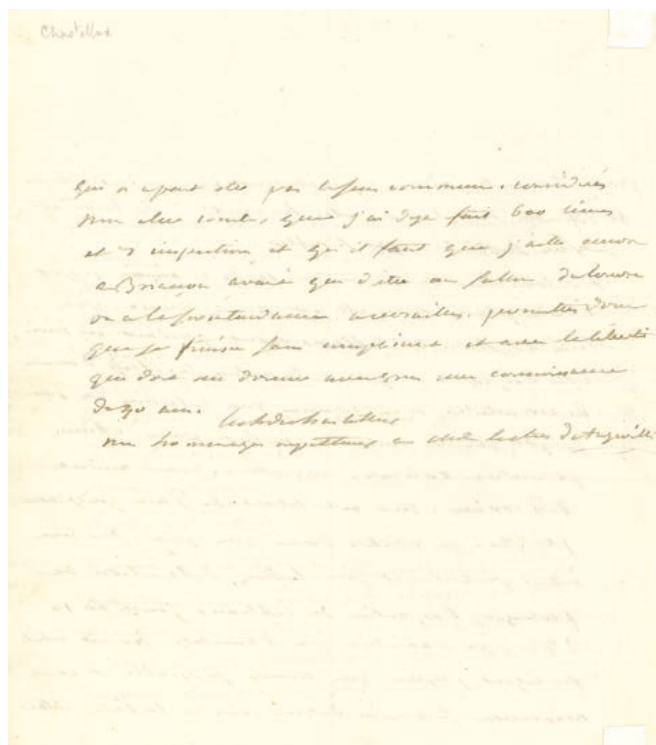 Chastellux
qui n'a peut etre pas le sens commun. considerés
mon cher comte, que j'ai deja fait 600 lieues
et 7 inspections et qu'il faut que j'aille encore
a Briancon avant que d'etre au sallon du louvre
ou a la surintendance a versailles. permettes donc
que je finisse sans compliment et avec la liberté
que doit me donner avec vous une connoissance
de 20 ans.
mes hommages a mde la ctesse d'Angiviller